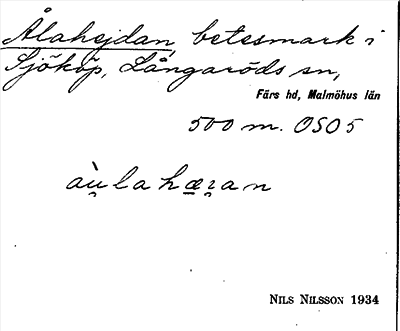 Ålahejdan, betesmark i
Sjököp, Långaröds sn,
Färs hd, Malmöhus län
500 m. OSO 5
àu̯lahæʀ̥an
NILS NILSSON 1934